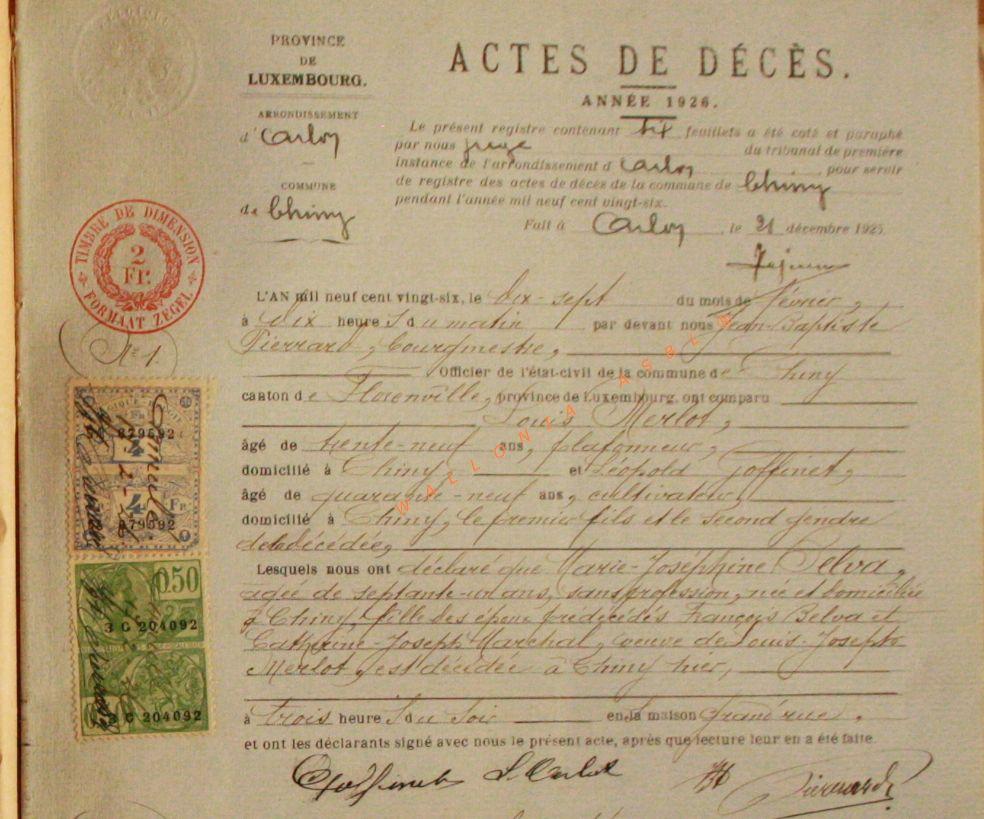 PROVINCE
DE
LUXEMBOURG.
ARRONDISSEMENT
d' Arlon
COMMUNE
de Chiny
ACTES DE DÉCÈS.
ANNÉE 1926.
Le présent registre contenant six feuillets a été coté et paraphé
par nous juge du tribunal de première
instance de l'arrondissement d'Arlon, pour servir
de registre des actes de décès de la commune de Chiny
pendant l'année mil neuf cent vingt-six.
Fait à Arlon, le 21 décembre 1925
TIMBRE DE DIMENSION
2
Fr.
FORMAAT ZEGEL
N° 1
L'AN mil neuf cent vingt-six, le dix-sept du mois de février,
à dix heures du matin par devant nous Jean-Baptiste
Pierrard, Bourgmestre,
Officier de l'état-civil de la commune de Chiny
canton de Florenville, province de Luxembourg, ont comparu
Louis Merlot,
âgé de trente-neuf ans, plafonneur,
domicilié à Chiny, et Léopold Goffinet,
âgé de quarante-neuf ans, cultivateur,
domicilié à Chiny, le premier fils et le second gendre
de la décédée,
Lesquels nous ont déclaré que Marie-Joséphine Pelva,
agée de septante-un ans, sans profession, née et domiciliée
à Chiny, fille des époux prédécédés François Belva et
Catherine-Joseph Marchal, veuve de Louis-Joseph
Merlot, est décédée à Chiny hier,
à trois heures du soir en la maison Grand'rue,
et ont les déclarants signé avec nous le présent acte, après que lecture leur en a été faite.
Goffinet L Merlot Pierrard
879592
4 Fr
879592
0.50
3 C 204092
3 C 204092
WALLONIA ASBL